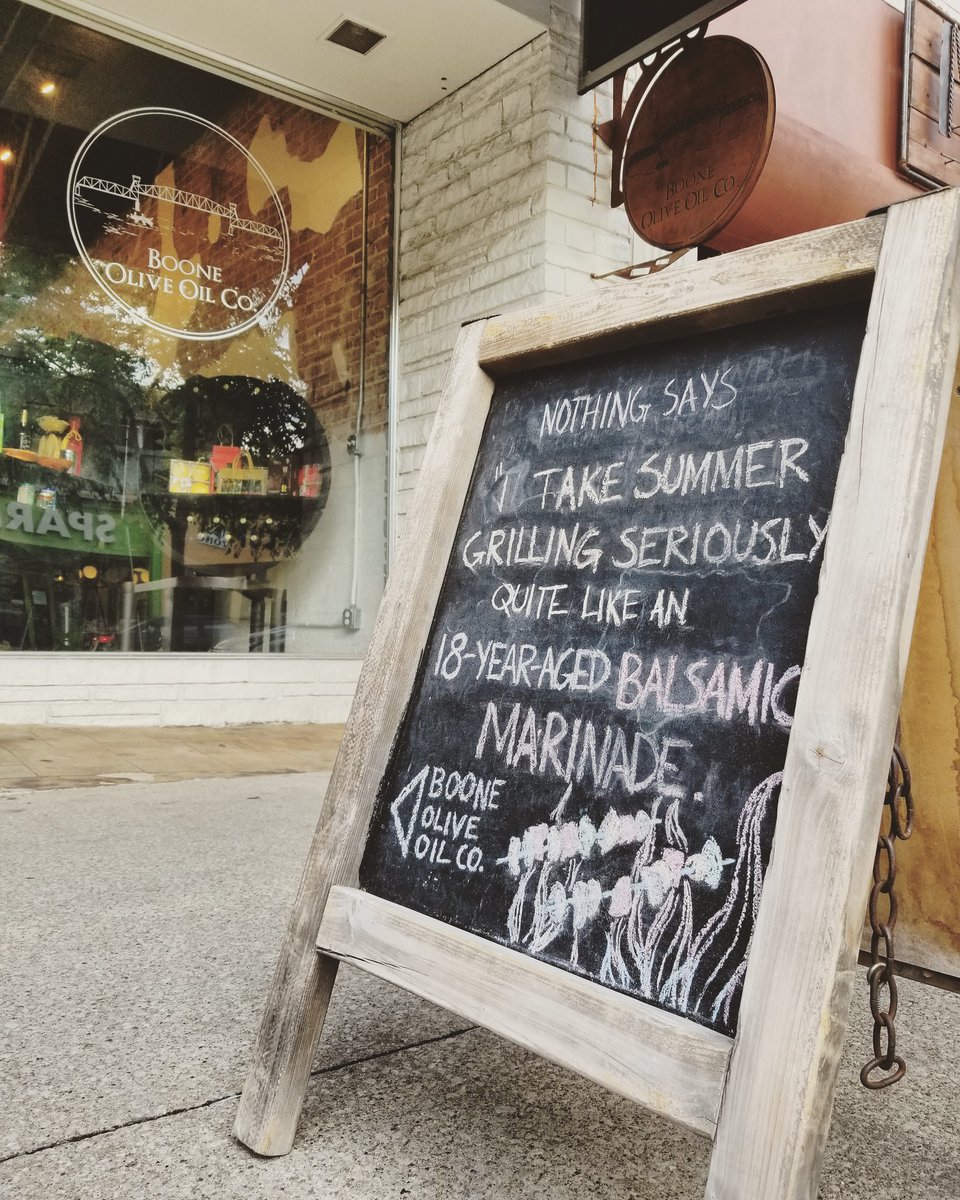 BOONE
OLIVE OIL CO.
BOONE
OLIVE OIL CO.
NOTHING SAYS
"I TAKE SUMMER
GRILLING SERIOUSLY
QUITE LIKE AN
18-YEAR-AGED BALSAMIC
MARINADE.
BOONE
OLIVE
OIL CO.
SPAR